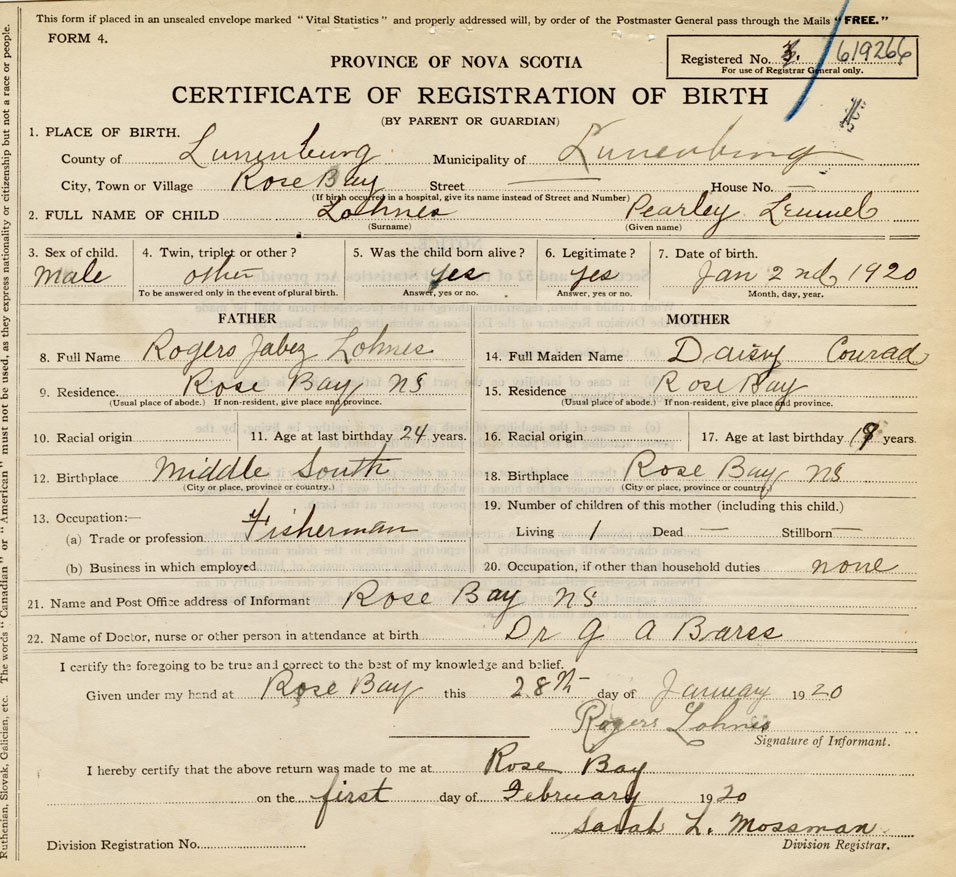 This form if placed in an unsealed envelope marked "Vital Statistics" and properly addressed will, by order of the Postmaster General pass through the Mails "FREE."
FORM 4.
Registered No. 619266
For use of Registrar General only.
PROVINCE OF NOVA SCOTIA
CERTIFICATE OF REGISTRATION OF BIRTH
(BY PARENT OR GUARDIAN)
1. PLACE OF BIRTH.
County of Lunenburg Municipality of Lunenburg
City, Town or Village Rose Bay Street — House No. —
(If birth occurred in a hospital, give its name instead of Street and Number)
2. FULL NAME OF CHILD Lohnes Pearley Lemuel
(Surname) (Given name)
3. Sex of child. 4. Twin, triplet or other? 5. Was the child born alive? 6. Legitimate? 7. Date of birth.
Male other Yes Yes Jan 2nd 1920
To be answered only in the event of plural birth. Answer, yes or no. Answer, yes or no. Month, day, year.
FATHER MOTHER
8. Full Name Rogers Jabez Lohnes 14. Full Maiden Name Daisy Conrad
9. Residence. Rose Bay NS 15. Residence Rose Bay
(Usual place of abode.) If non-resident, give place and province. (Usual place of abode.) If non-resident, give place and province.
10. Racial origin 11. Age at last birthday 24 years. 16. Racial origin 17. Age at last birthday years.
12. Birthplace Middle South 18. Birthplace Rose Bay NS
(City or place, province or country.) (City or place, province or country.)
13. Occupation:— 19. Number of children of this mother (including this child.)
(a) Trade or profession Fisherman Living 1 Dead — Stillborn —
(b) Business in which employed 20. Occupation, if other than household duties none
21. Name and Post Office address of Informant Rose Bay NS
22. Name of Doctor, nurse or other person in attendance at birth Dr G A Barss
I certify the foregoing to be true and correct to the best of my knowledge and belief.
Given under my hand at Rose Bay this 28th day of January 1920
Rogers Lohnes
Signature of Informant.
I hereby certify that the above return was made to me at Rose Bay
on the first day of February 1920
Sarah L. Mossman
Division Registrar.
Division Registration No.
Ruthenian, Slovak, Galician, etc. The words "Canadian" or "American" must not be used, as they express nationality or citizenship but not a race or people.